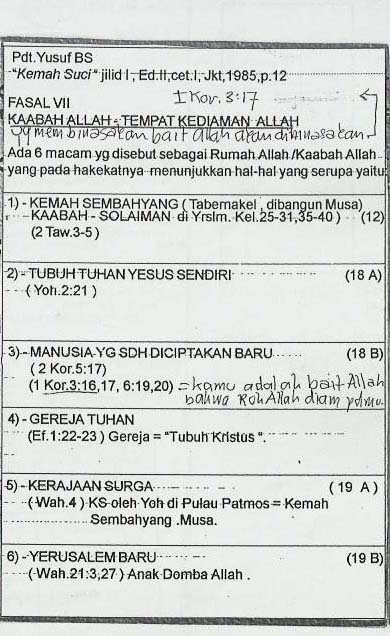 Pdt.Yusuf BS
"Kemah Suci" jilid I, Ed.II,cet.I, Jkt,1985,p.12
I Kor. 3:17
FASAL VII
KAABAH ALLAH - TEMPAT KEDIAMAN ALLAH
yg membinasakan bait Allah akan dibinasakan
Ada 6 macam yg disebut sebagai Rumah Allah /Kaabah Allah
yang pada hakekatnya menunjukkan hal-hal yang serupa yaitu
1) - KEMAH SEMBAHYANG ( Tabernakel , dibangun Musa)
- KAABAH - SOLAIMAN di Yrslm. Kel.25-31,35-40 ) (12)
(2 Taw.3-5 )
2) - TUBUH TUHAN YESUS SENDIRI (18 A)
( Yoh.2:21 )
3) - MANUSIA YG SDH DICIPTAKAN BARU (18 B)
( 2 Kor.5:17)
(1 Kor.3:16,17, 6:19,20) = kamu adalah bait Allah
bahwa Roh Allah diam
4) - GEREJA TUHAN
(Ef.1:22-23 ) Gereja = "Tubuh Kristus ".
5) - KERAJAAN SURGA ( 19 A)
( Wah.4 ) KS oleh Yoh di Pulau Patmos = Kemah
Sembahyang .Musa.
6) - YERUSALEM BARU (19 B)
( Wah.21:3,27 ) Anak Domba Allah .